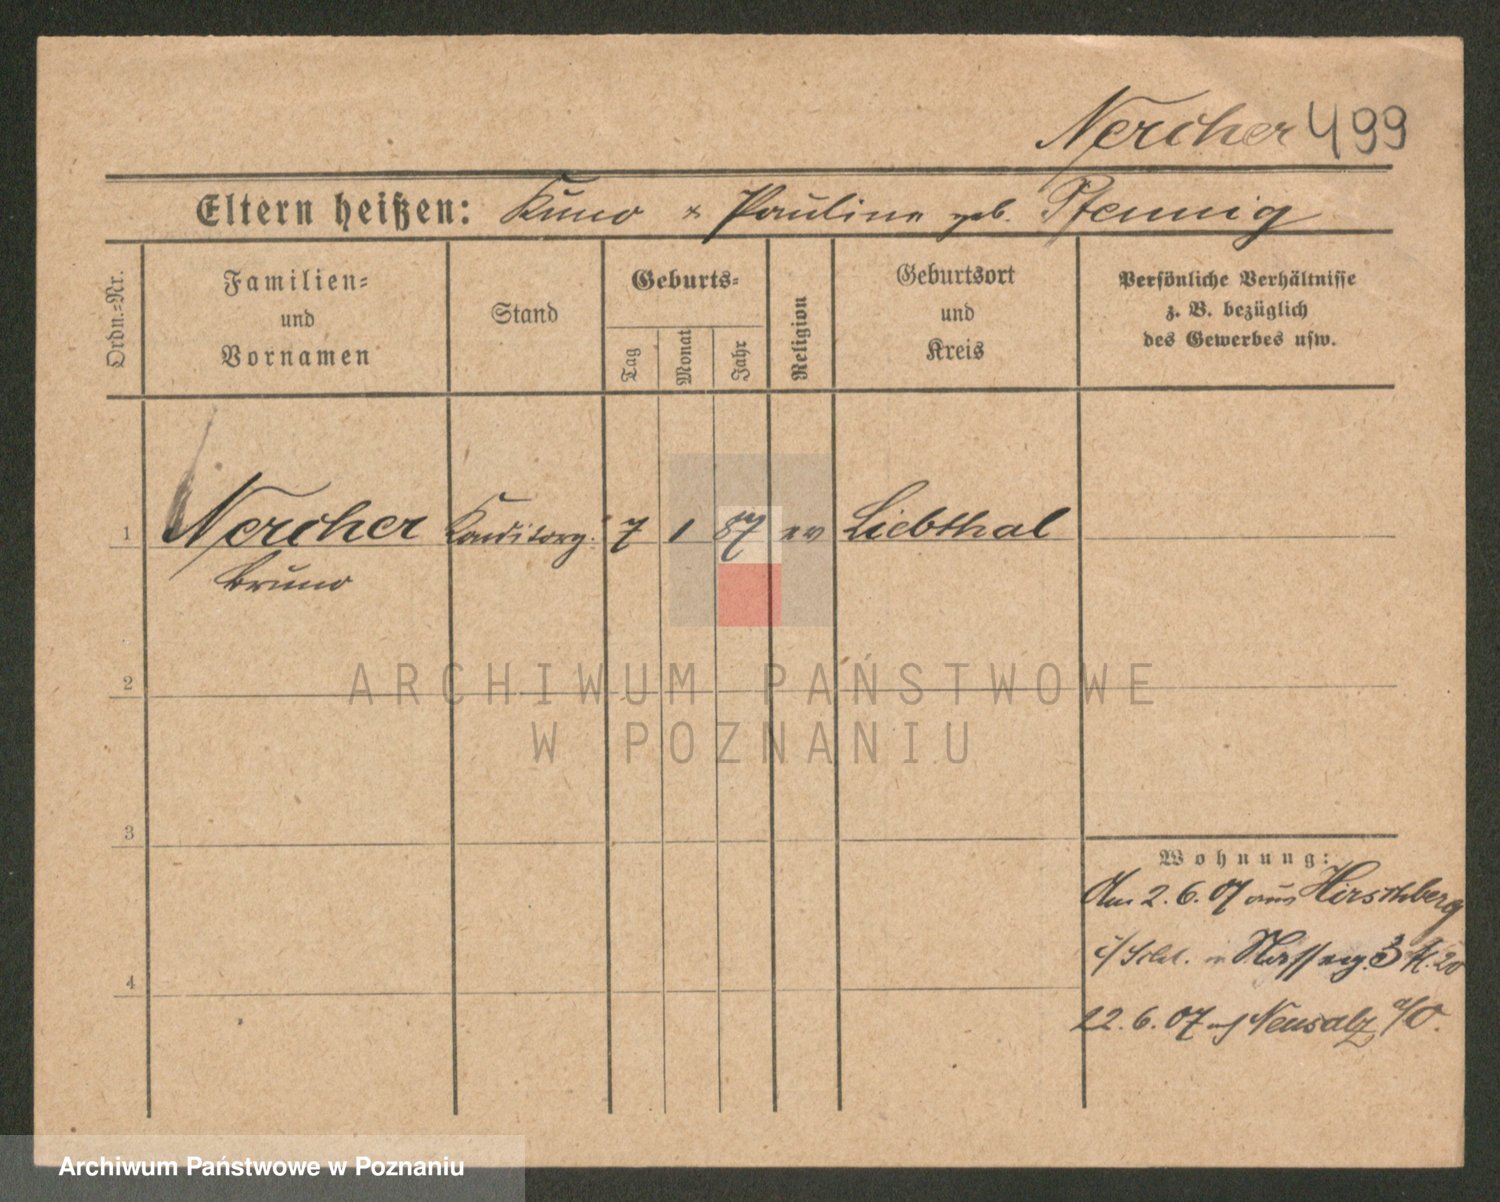 Nercher 499
Eltern heißen: Kuno & Pauline geb. Pfennig
Ordn.-Nr.
Familien-
und
Vornamen
Stand
Geburts-
Tag
Monat
Jahr
Religion
Geburtsort
und
Kreis
Persönliche Verhältnisse
z. B. bezüglich
des Gewerbes usw.
1 Nercher Konditorg. 7 1 87 ev Liebthal
Bruno
2
3
4
Wohnung:
Am 2. 6. 07 aus Hirschberg
22. 6. 07 Neusalz a/O.
ARCHIWUM PAŃSTWOWE
W POZNANIU
Archiwum Państwowe w Poznaniu